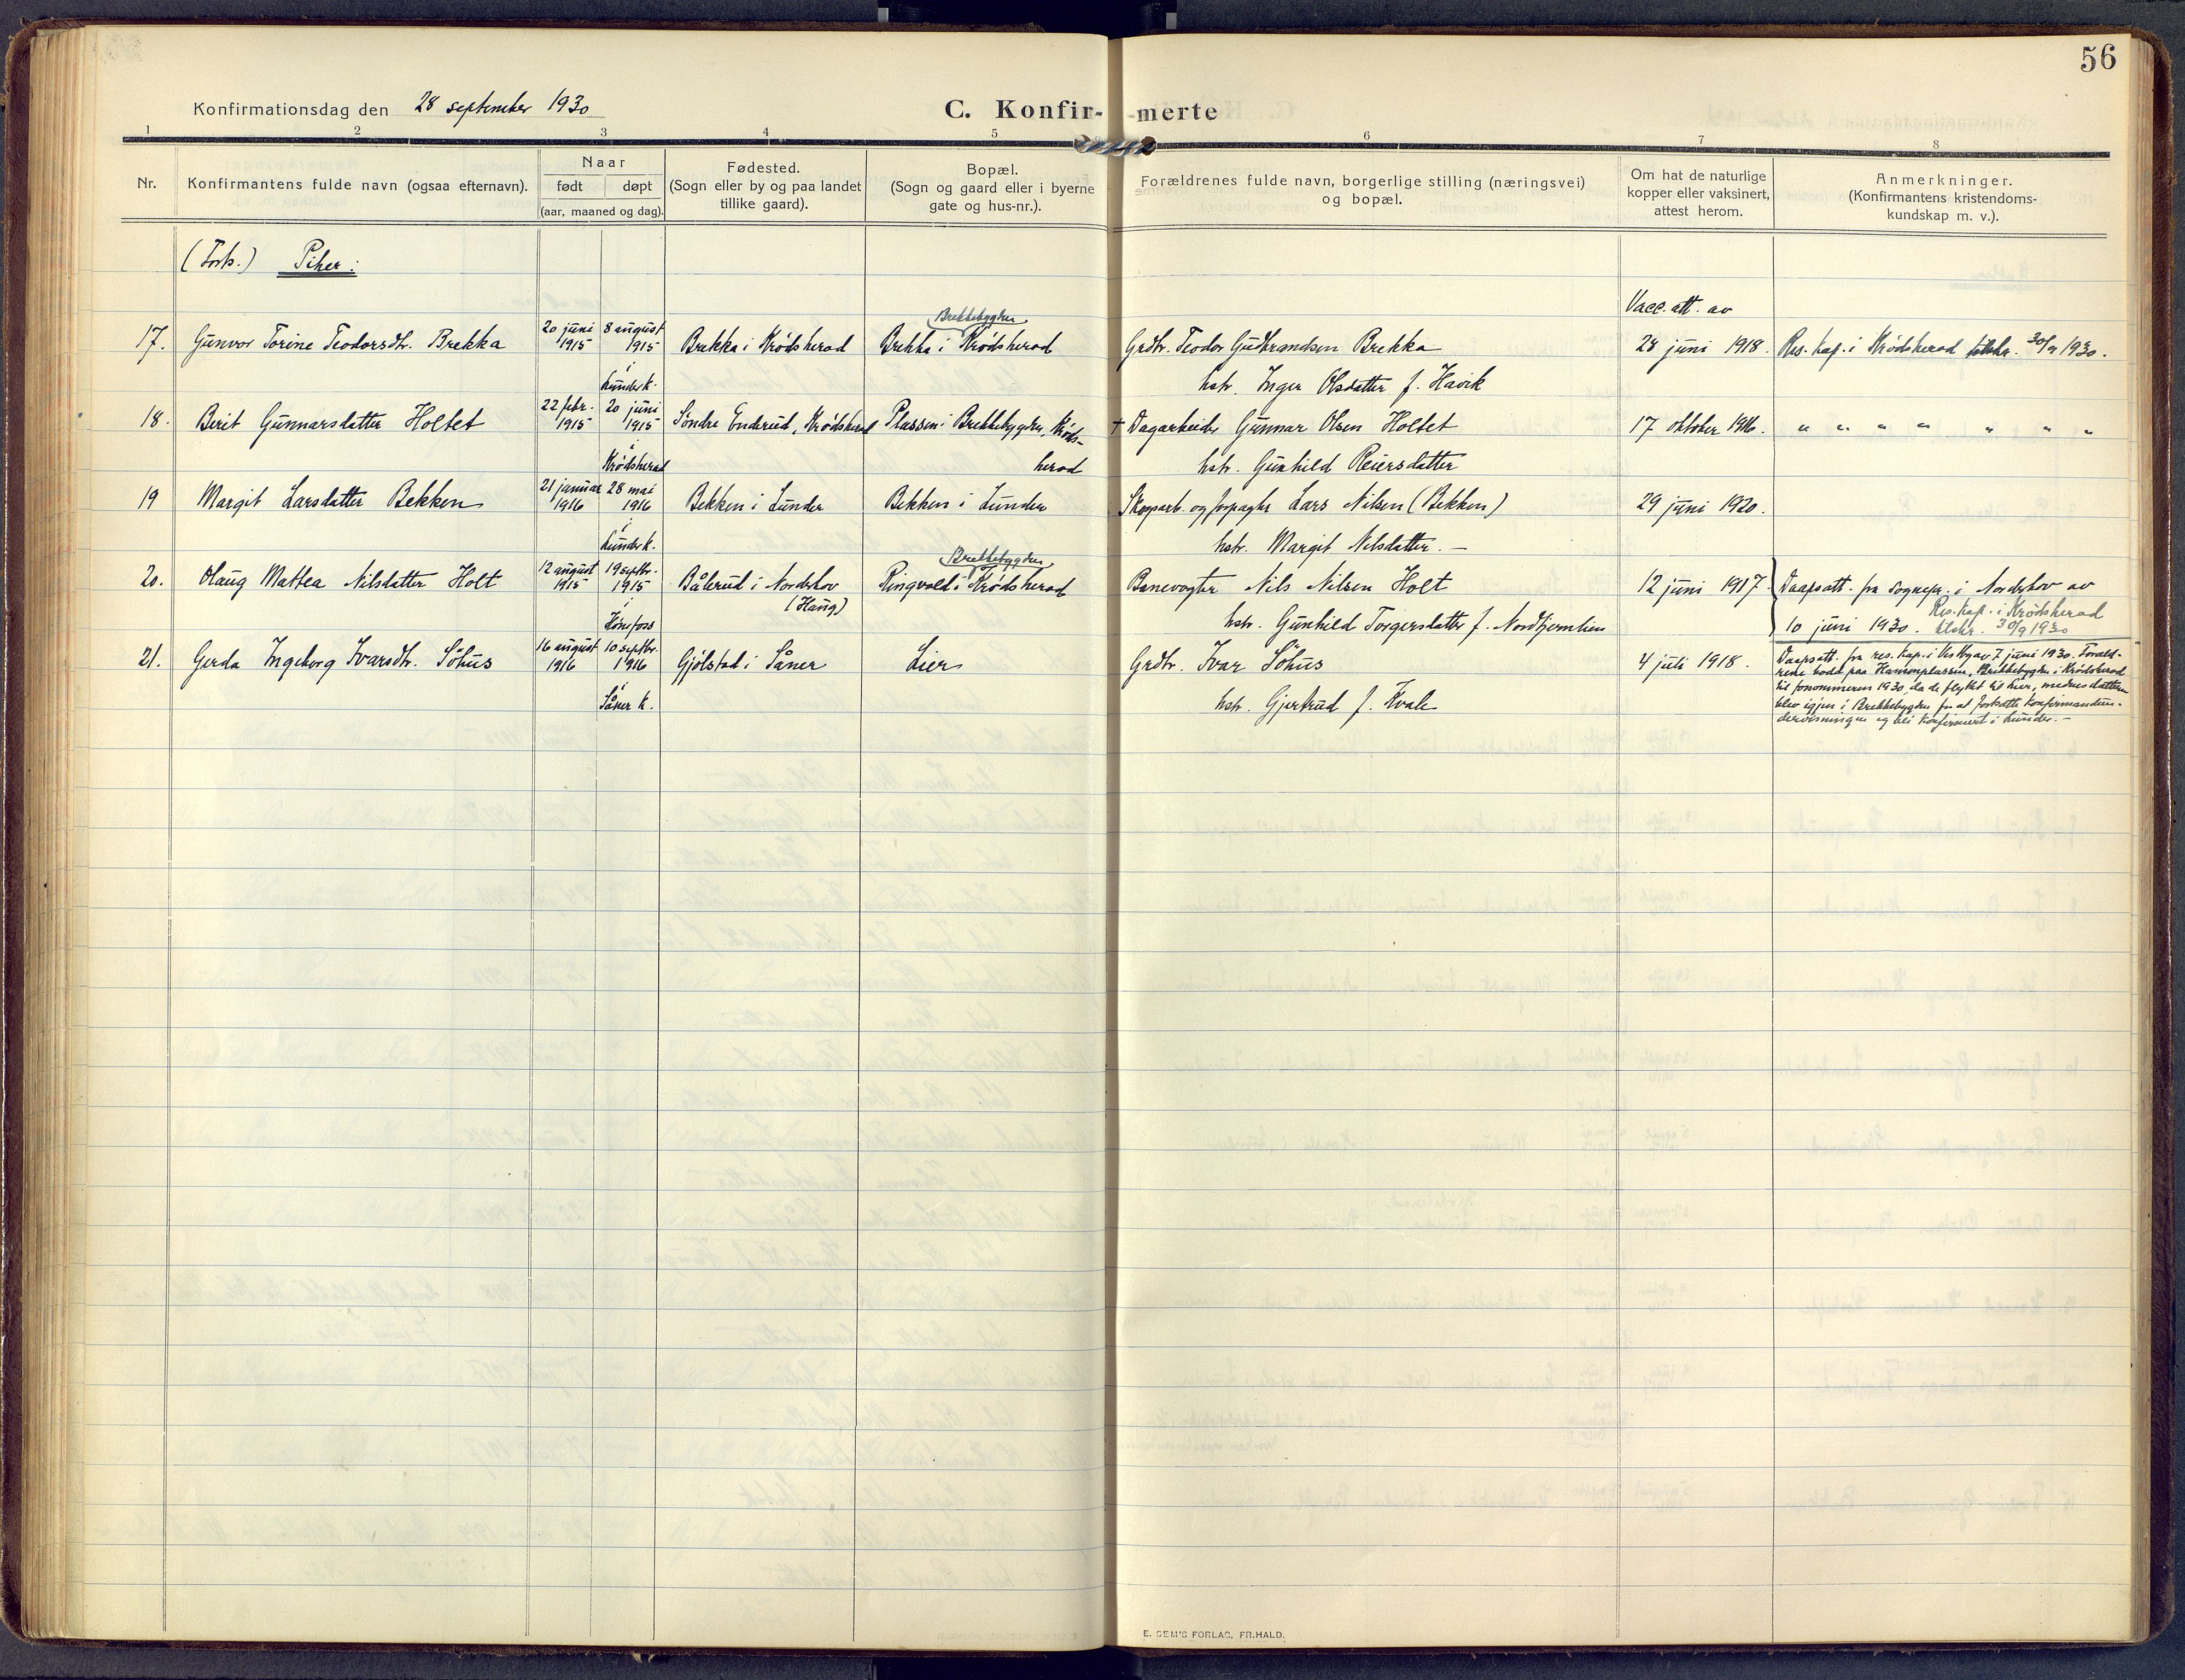 56
Konfirmationsdag den 28 september 1930
C. Konfir- -merte
1 2 3 4 5 6 7 8
Nr.
Konfirmantens fulde navn (ogsaa efternavn).
Naar
født døpt
(aar, maaned og dag).
Fødested.
(Sogn eller by og paa landet
tillike gaard).
Bopæl.
(Sogn og gaard eller i byerne
gate og hus-nr.).
Forældrenes fulde navn, borgerlige stilling (næringsvei)
og bopæl.
Om hat de naturlige
kopper eller vaksinert,
attest herom.
Anmerkninger.
(Konfirmantens kristendoms-
kundskap m. v.).
(Forts.) Piker:
Vacc. att. av
17. Gunvor Torine Teodorsdtr. Brekka
20 juni 1915
8 august 1915
i Lunder k.
Brekka i Krødsherad
Brekkebygden
Brekka i Krødsherad
Grdbr. Teodor Gudbrandsen Brekka
hstr. Inger Olsdatter f. Havik
28 juni 1918.
Res. kap. i Krødsherad tilskr. 30/9 1930.
18. Berit Gunnarsdatter Holtet
22 febr. 1915
20 juni 1915
i Krødsherad
Søndre Enderud, Krødsherad
Plassen i Brekkebygden, Krøds-
herad
+ Dagarbeider Gunnar Olsen Holtet
hstr. Gunhild Reiersdatter
17 oktober 1916.
" " " " " " "
19 Margit Larsdatter Bekken
21 januar 1916
28 mai 1916
i Lunder k.
Bekken i Lunder
Bekken i Lunder
Skogsarb. og forpagter Lars Nilsen (Bekken)
hstr. Margit Nilsdatter. —
29 juni 1920.
20. Olaug Mattea Nilsdatter Holt
12 august 1915
19 septbr. 1915
i Hønefoss
Båkrud i Norderhov
(Haug)
Brekkebygden
Ringvold i Krødsherad
Banevogter Nils Nilsen Holt
hstr. Gunhild Torgersdatter f. Nordtjernlien
12 juni 1917.
Daapsatt. fra sognepr. i Norderhov av
10 juni 1930.
Res. kap. i Krødsherad
tilskr. 30/9 1930
21. Gerda Ingeborg Ivarsdtr. Søhus
16 august 1916
10 septbr. 1916
i Såner k.
Gjølstad i Såner
Lier
Grdbr. Ivar Søhus
hstr. Gjertrud f. Kvale
4 juli 1918.
Daapsatt. fra res. kap. i Vestby av 7 juni 1930. Foræld-
rene bodd paa Hansenplassen, Brekkebygden i Krødsherad
til forsommeren 1930, da de flyttet til Lier, mens datteren
blev igjen i Brekkebygden for at fortsætte konfirmandun-
dervisningen og bli konfirmert i Lunder. —
E. SEM'S FORLAG, FR.HALD.